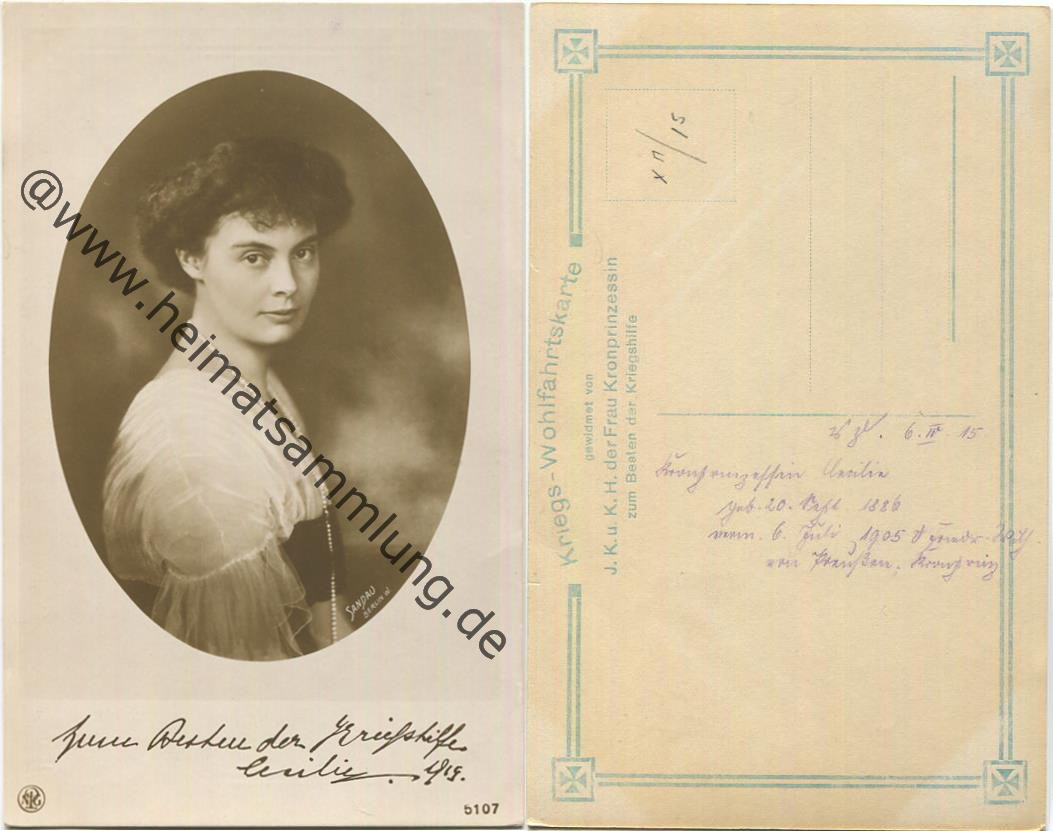 @www.heimatsammlung.de
SANDAU
BERLIN W
Zum Besten der Kriegshilfe
Cecilie. 1915.
NPG
5107
XII/15
Kriegs-Wohlfahrtskarte
gewidmet von
J. K. u. K. H. der Frau Kronprinzessin
zum Besten der Kriegshilfe
6. IV 15
Kronprinzessin Cecilie
geb. 20. Sept 1886
verm. 6. Juli 1905 Friedr. Wilh
von Preußen, Kronprinz